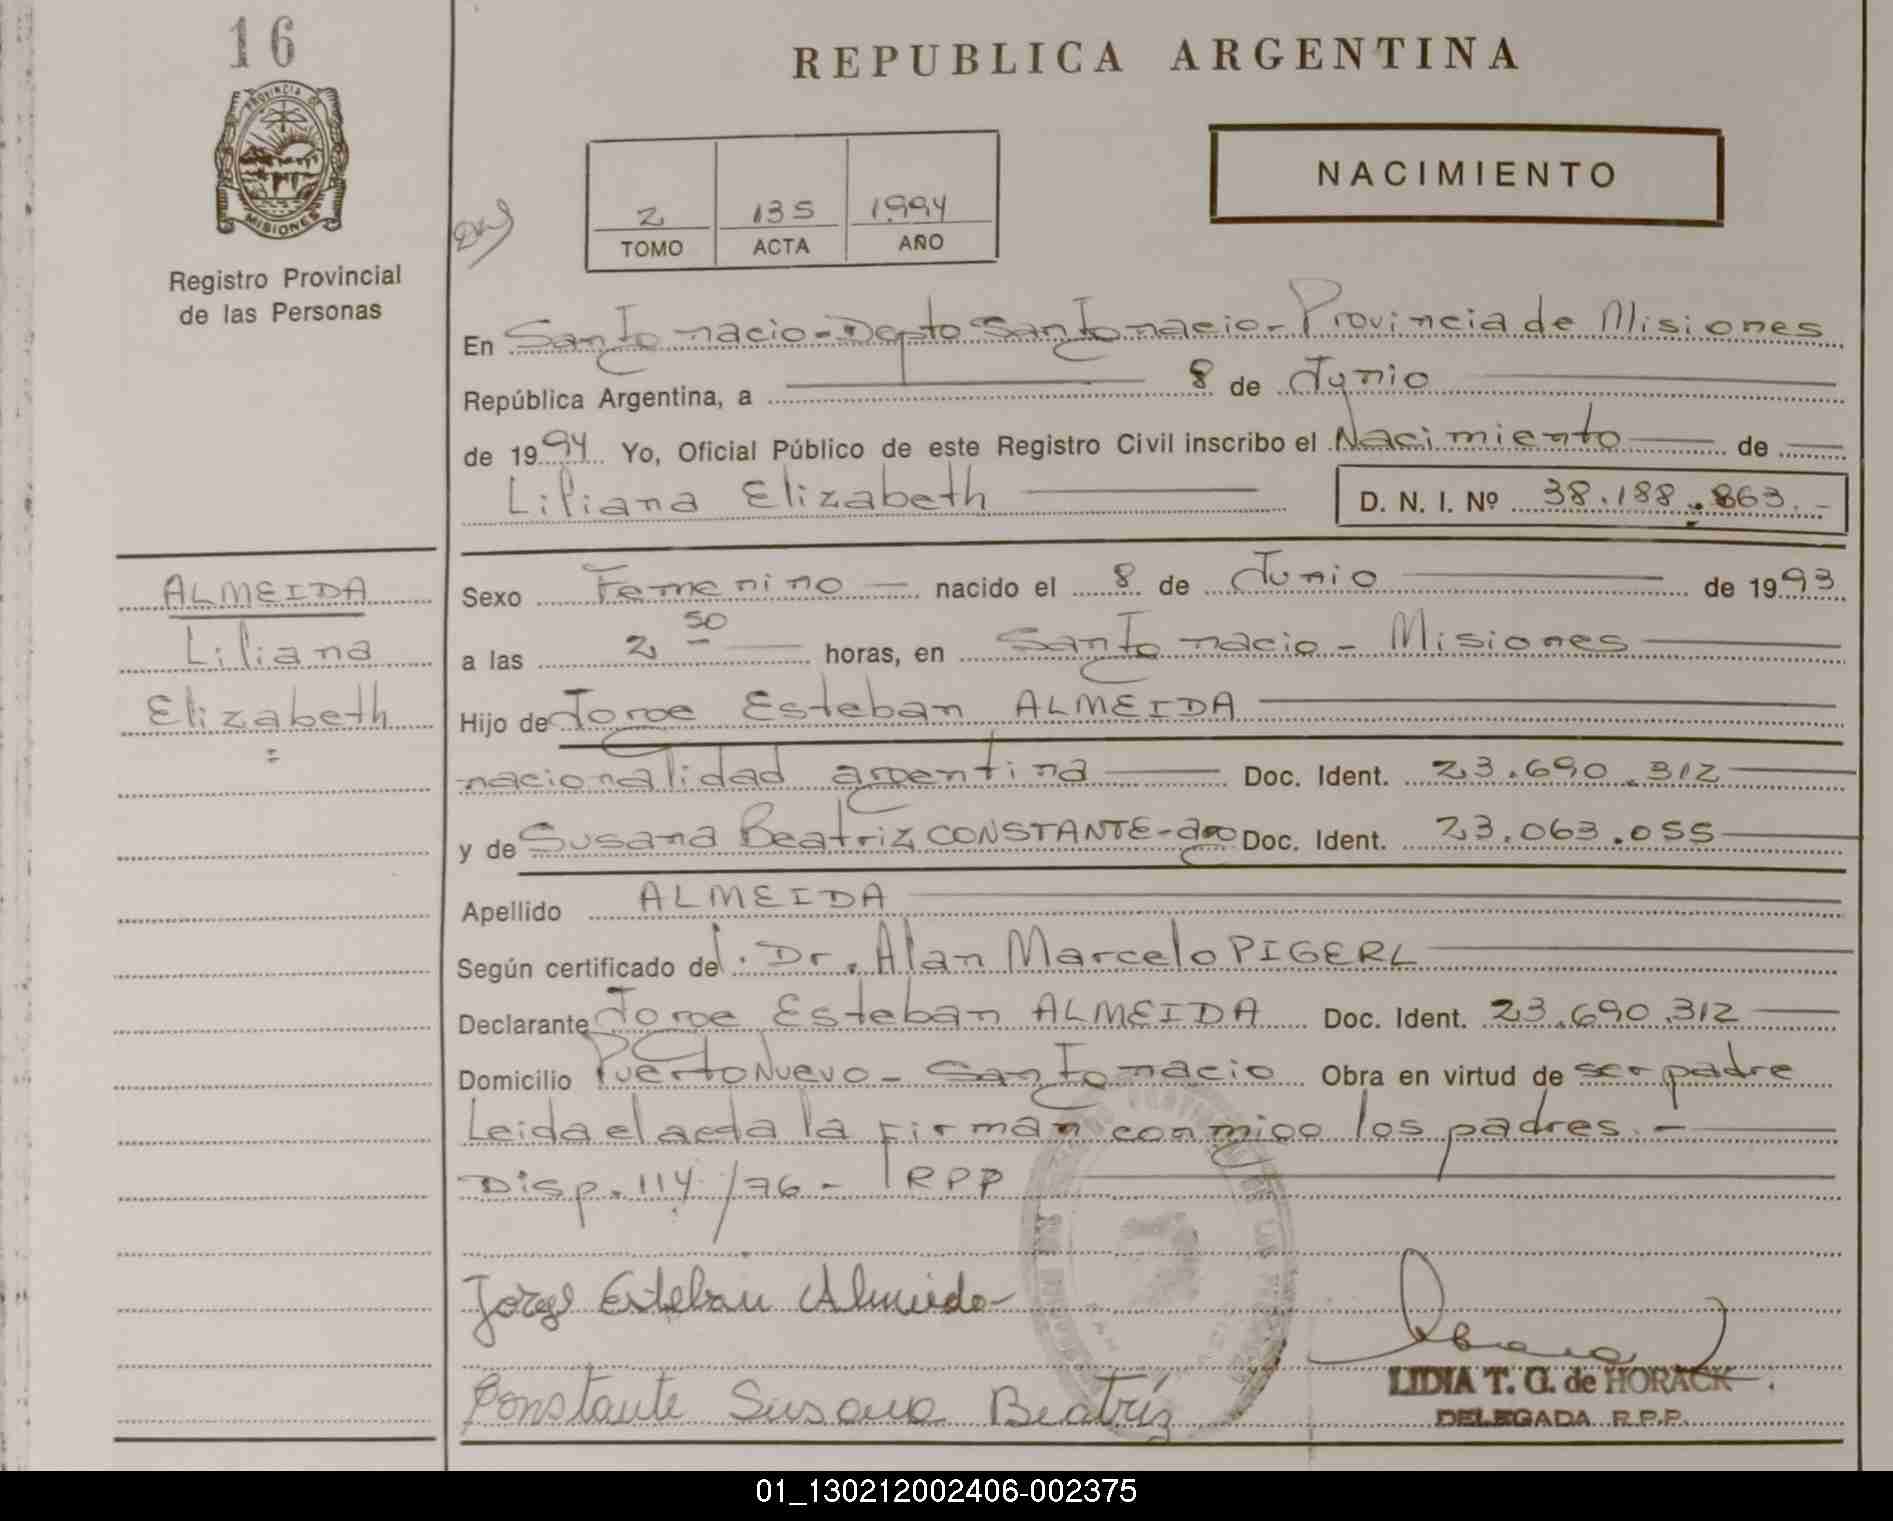 16
REPUBLICA ARGENTINA
PROVINCIA DE
MISIONES
NACIMIENTO
2 135 1994
TOMO ACTA AÑO
Registro Provincial
de las Personas
En San Ignacio - Depto San Ignacio - Provincia de Misiones
República Argentina, a 8 de Junio
de 1994 Yo, Oficial Público de este Registro Civil inscribo el Nacimiento de
Liliana Elizabeth D. N. I. Nº 38.188.863.-
ALMEIDA
Liliana
Elizabeth
Sexo Femenino nacido el 8 de Junio de 1993
a las 2 50 horas, en San Ignacio - Misiones
Hijo de Jorge Esteban ALMEIDA
nacionalidad argentina Doc. Ident. 23.690.312
y de Susana Beatriz CONSTANTE - Doc. Ident. 23.063.055
Apellido ALMEIDA
Según certificado del. Dr. Alan Marcelo PIGERL
Declarante Jorge Esteban ALMEIDA Doc. Ident. 23.690.312
Domicilio Puerto Nuevo - San Ignacio Obra en virtud de ser padre
Leida el acta la firman conmigo los padres.-
Disp. 114/76 - RPP
Jorge Esteban Almeida
Constante Susana Beatriz
LIDIA T. G. de HORACK
DELEGADA R.P.P.
01_130212002406-002375